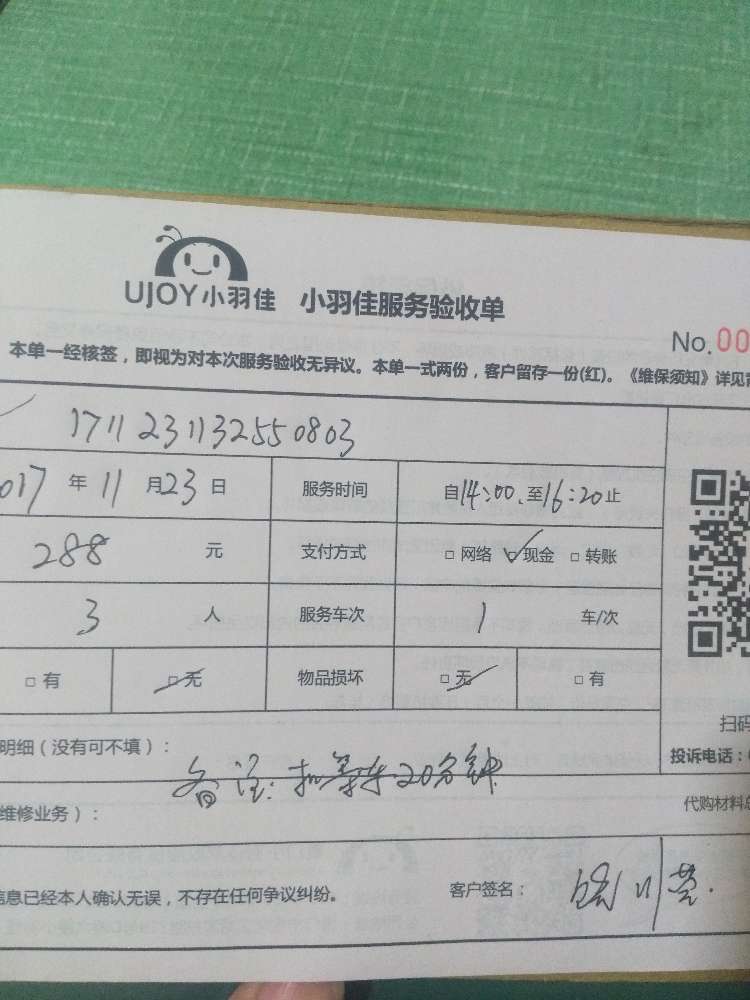 UJOY小羽佳 小羽佳服务验收单
No.00
本单一经核签，即视为对本次服务验收无异议。本单一式两份，客户留存一份(红)。《维保须知》详见
1711231132550803
017年11月23日 服务时间 自14:00至16:20止
288元 支付方式 □网络 ☑现金 □转账
3人 服务车次 1车/次
□有 ☑无 物品损坏 ☑无 □有
扫码
明细（没有可不填）： 投诉电话：
备注: 20分钟
维修业务）： 代购材料总
信息已经本人确认无误，不存在任何争议纠纷。 客户签名：